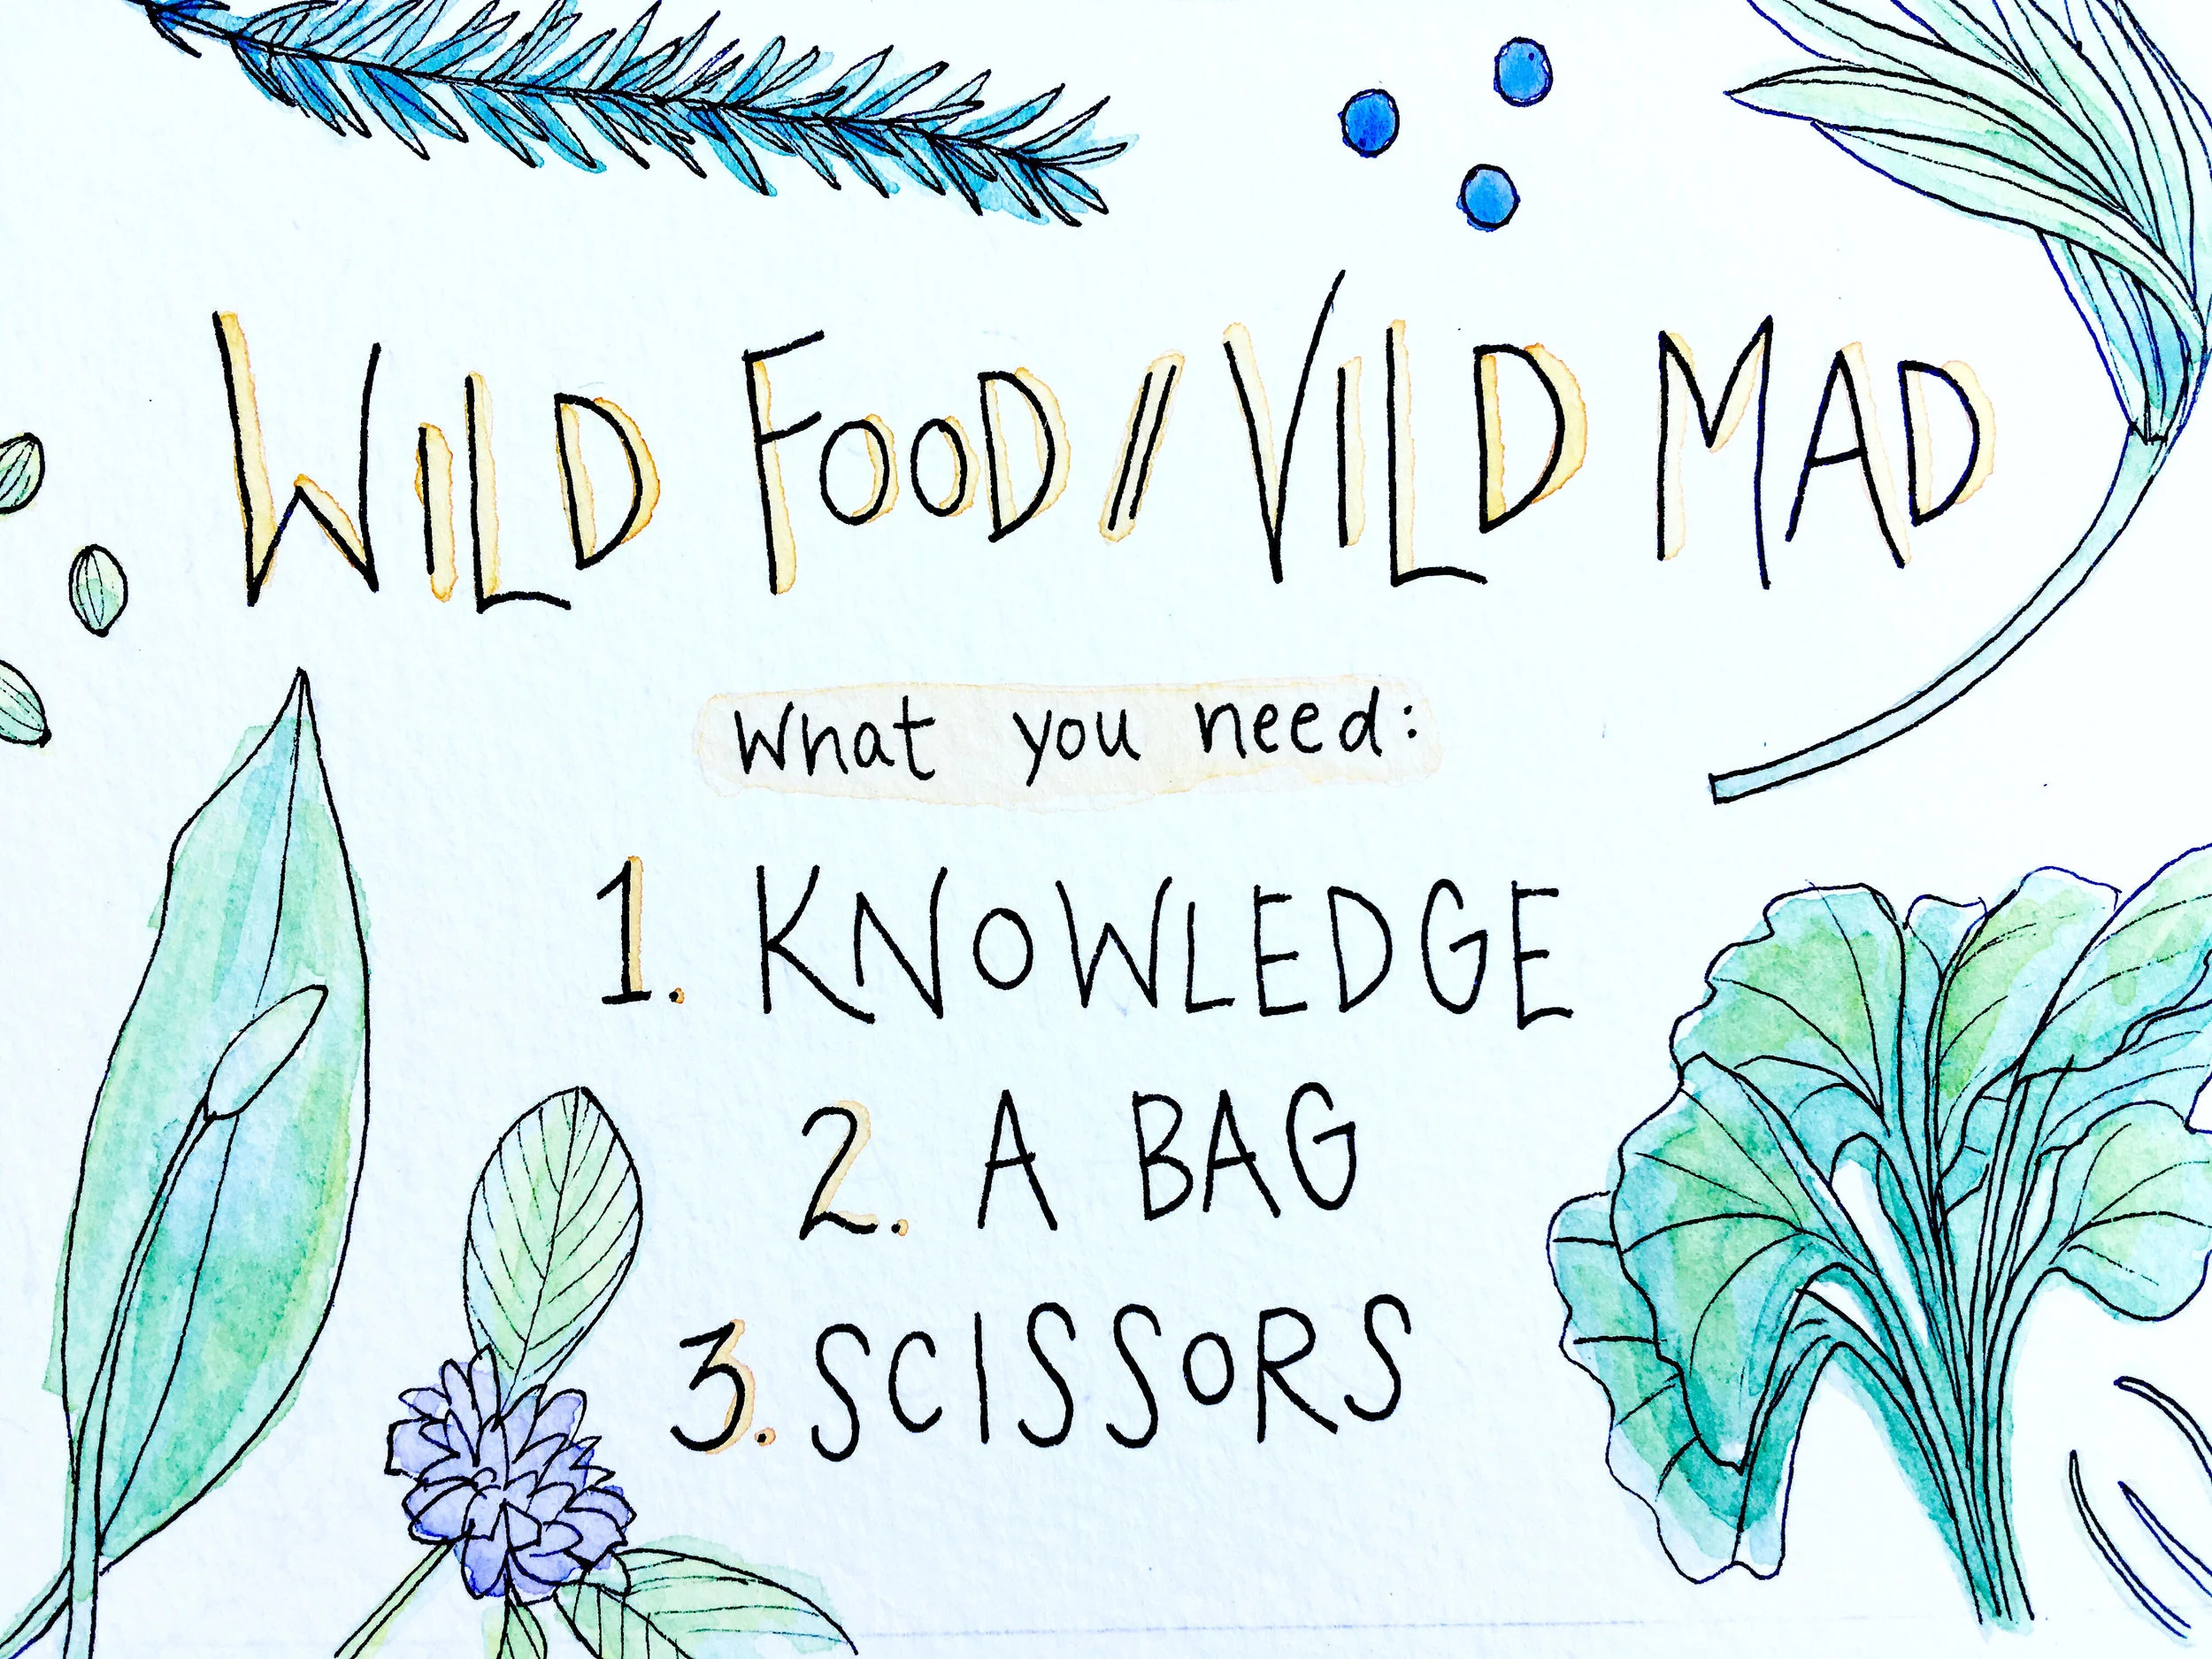 WILD FOOD // VILD MAD
What you need:
1. KNOWLEDGE
2. A BAG
3. SCISSORS